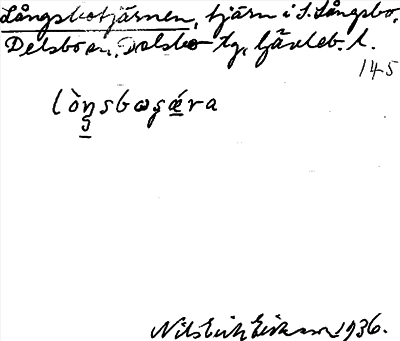 Långsbotjärnen, tjärn i S. Långsbo,
Delsbo sn, Delsbo tg, Gävleb. l.
145
lòŋsboʂǽra
Nils Erik Eriksson 1936.